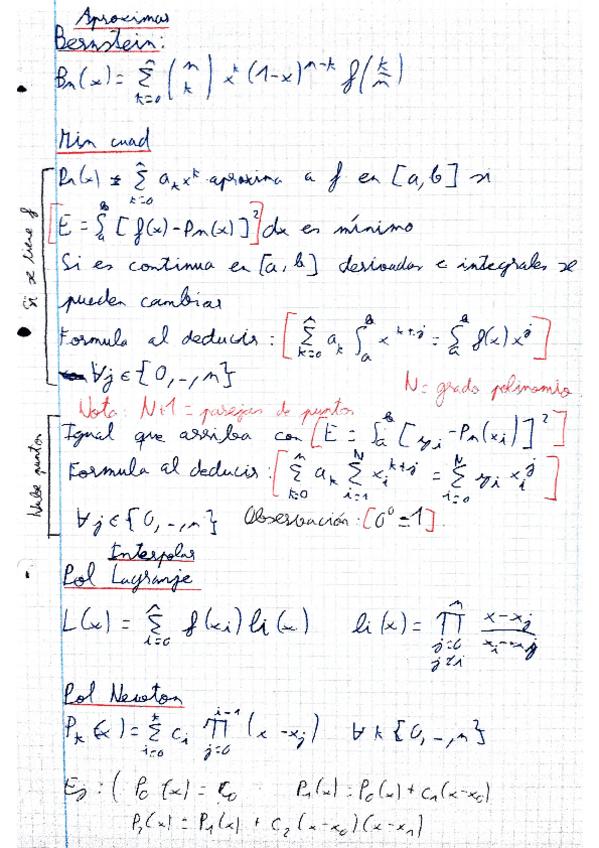 Aproximar
Bernstein:
Bₙ(x) = Σ_{k=0}^{n} (n k) x^k (1-x)^{n-k} f(k/n)
Min cuad
Si se tiene f
Pₙ(x) = Σ_{k=0}^{n} a_k x^k aproxima a f en [a,b] si
[E = ∫_a^b [f(x) - Pₙ(x)]²] dx es mínimo
Si es continua en [a,b] derivadas e integrales se
pueden cambiar
Formula al deducir: [Σ_{k=0}^{n} a_k ∫_a^b x^{k+j} = ∫_a^b f(x) x^j]
∀j ∈ {0,-,n}
N = grado polinomio
Nota: N+1 = parejas de puntos
Nube puntos
Igual que arriba con [E = ∫_a^b [y_i - Pₙ(x_i)]²]
Formula al deducir: [Σ_{k=0}^{n} a_k Σ_{i=1}^{N} x_i^{k+j} = Σ_{i=0}^{N} y_i x_i^j]
∀j ∈ {0,-,n} Observación: [0⁰=1].
Interpolar
Pol Lagranje
L(x) = Σ_{i=0}^{n} f(x_i) li(x) li(x) = ∏_{j=0, j≠i}^{n} (x-x_j)/(x_i-x_j)
Pol Newton
P_k(x) = Σ_{i=0}^{k} c_i ∏_{j=0}^{i-1} (x-x_j) ∀k {0,-,n}
Ej: ( P₀(x) = c₀ P₁(x) = P₀(x) + c₁(x-x₀)
P₂(x) = P₁(x) + c₂(x-x₀)(x-x₁)